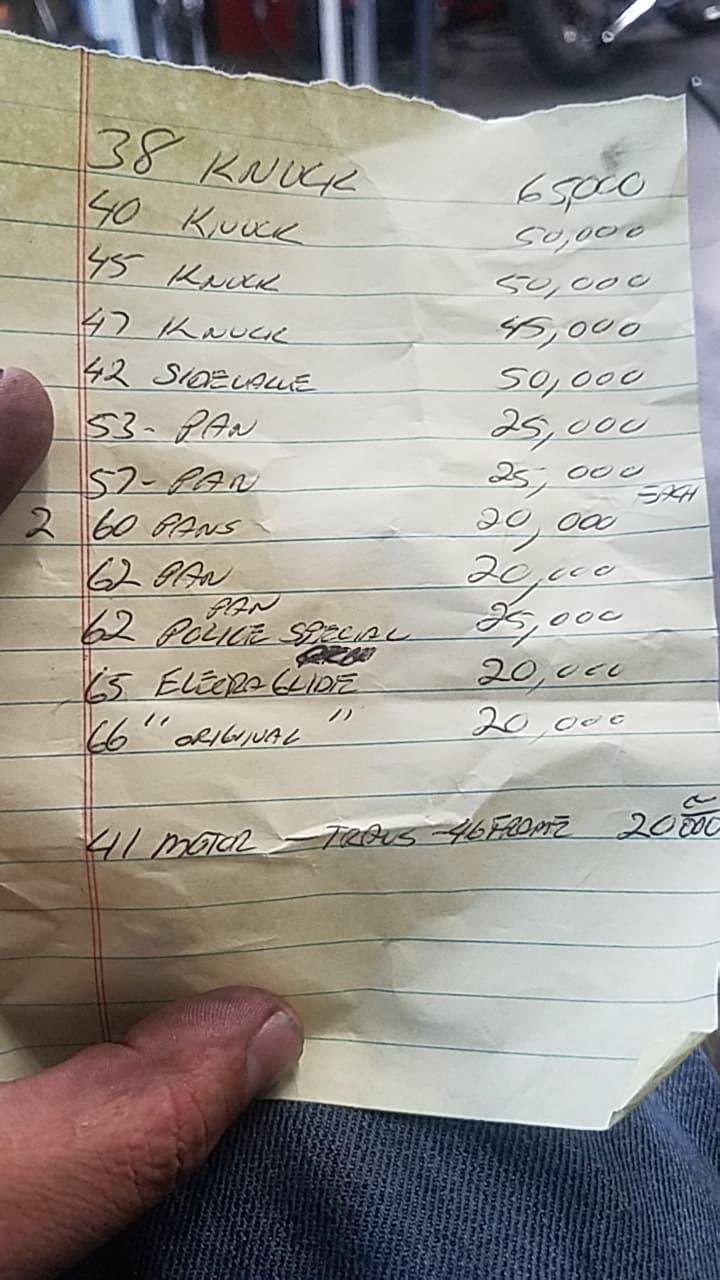 38 KNUCK 65,000
40 KNUCK 50,000
45 KNUCK 50,000
47 KNUCK 45,000
42 SIDEVALVE 50,000
53- PAN 25,000
57- PAN 25,000
2 60 PANS 20,000 EACH
62 PAN 20,000
62 PAN POLICE SPECIAL 25,000
65 ELECRA GLIDE 20,000
66 " ORIGINAL " 20,000
41 MOTOR - TRANS - 46 FRAME 20,000